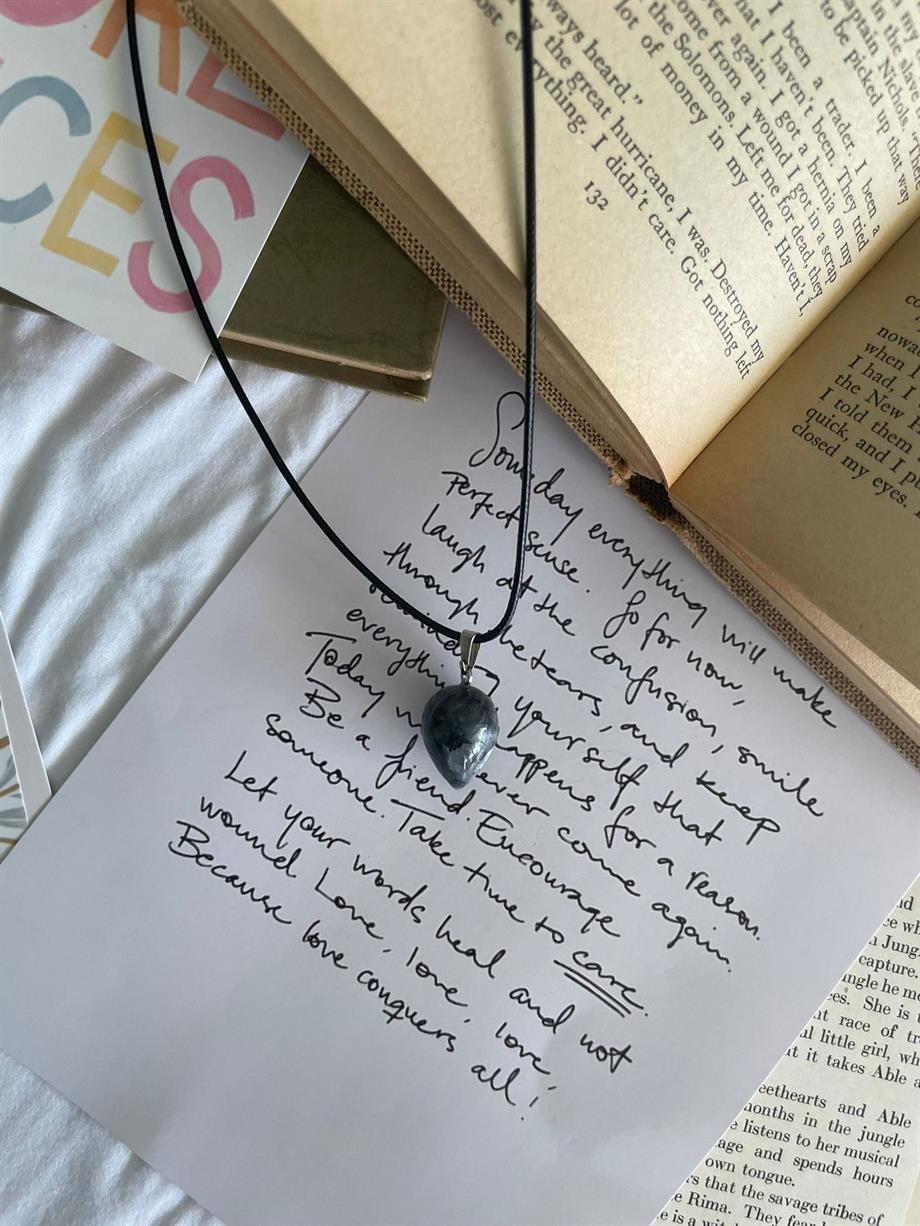 ORE
CES
in the slave
to be picked up that way
I been a trader. I been a
that I haven't been. They tried
over again. I got a hernia on my
come from a wound I got in a scrap
the Solomons. Left me for dead, they
lot of money in my time. Haven't I,
always heard."
by the great hurricane, I was. Destroyed my
everything. I didn't care. Got nothing left
132
when I
I had, I
the New
I told them
quick, and I
closed my eyes.
Someday everything will make
Perfect sense. So for now,
laugh at the confusion, smile
through the tears, and keep
reminding yourself that
everything happens for a reason.
Today will never come again.
Be a friend. Encourage
someone. Take time to care.
Let your words heal and not
wound Love, love, love,
Because love conquers all!
capture.
She is
race of
little girl,
it takes Able
sweethearts and Able
months in the jungle
listens to her musical
and spends hours
own tongue.
that the savage tribes of
Rima. They
is a